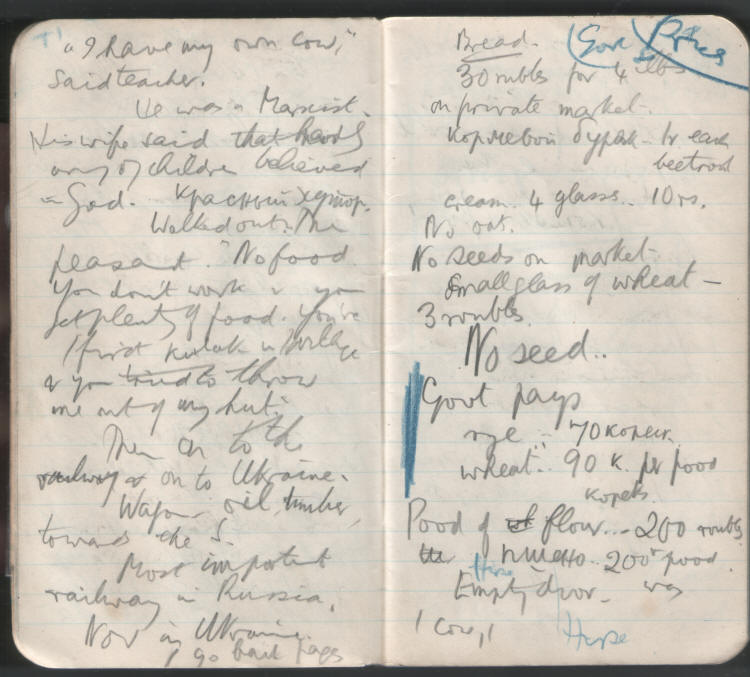 "I have my own cow,"
said teacher.
He was a Marxist.
His wife said that hardly
any of children believed
in God. Красный хутор.
Walked out. The
peasant. "No food
You don't work & you
get plenty of food. You're
1 first kulak in village
& you tried to throw
me out of my hut."
Then on to the
railway & on to Ukraine.
oil, timber,
towards the S.
Most important
railway in Russia.
Now in Ukraine.
I go back pages
Bread. Govt Prices
30 rubles for 4 lbs
on private market.
кормовой бурак - 1r each
beetroot
cream. 4 glasses.. 10 rs.
No oat.
No seeds on market.
Small glass of wheat -
3 roubles.
No seed..
Govt pays
rye - 70 kopeck.
wheat.. 90 k. per pood
kopeks.
Pood of flour... 200 roubles
пшено.. 200r pood.
Horse
Empty door.
1 cow, 1 Horse